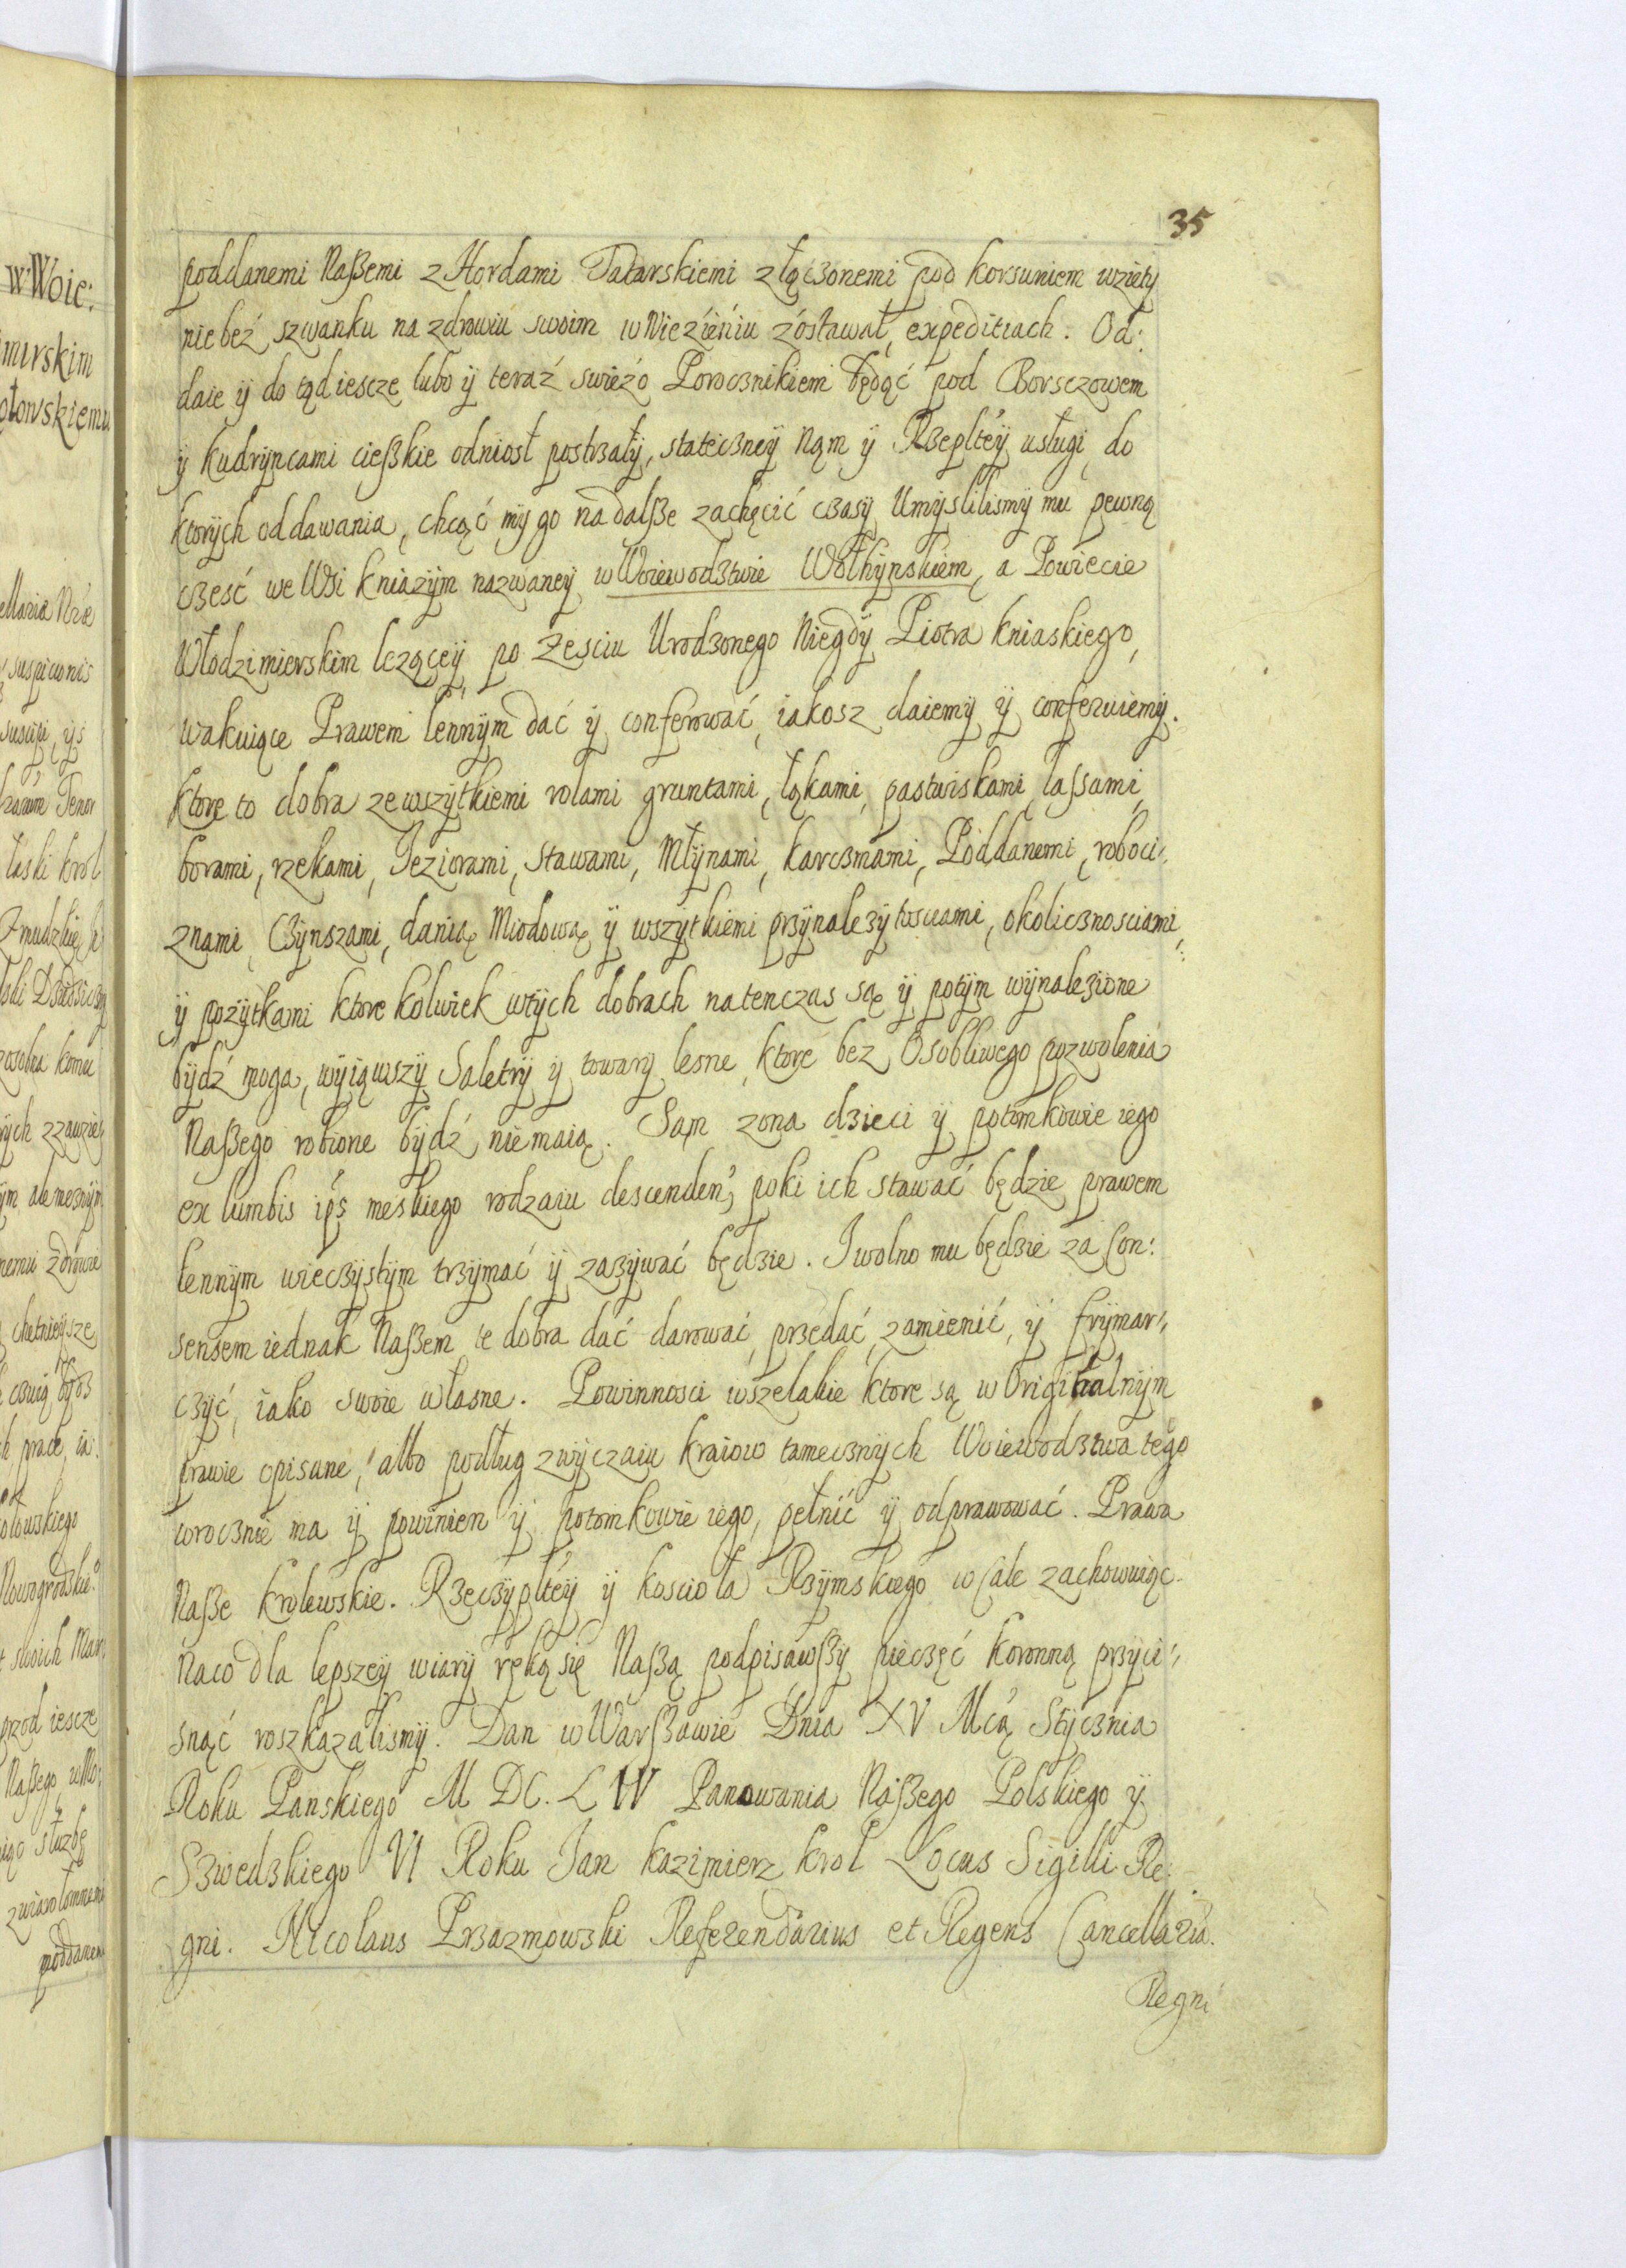 35
poddanemi Naßemi z Hordami Tatarskiemi złączonemi pod korsuniem wzięty
niebeź szwanku na zdrowiu swoim w Wiezieniu zóstawał, expeditiach. Od:
daie ÿ do tąd iescze lubo ÿ teraź swieźo Porocznikiem będąć pod Borsczowem
ÿ kudrÿncami cießkie odniosł postrzałÿ, stateczneÿ Nąm ÿ Rzepltéÿ usługi, do
ktorÿch oddawania, chcąć mÿ go na dalße zachęcić czasÿ Umÿslilismÿ mu pewną
czesć we Wsi kniażÿm nazwaneÿ w Woiewodztwie Wołhÿnskiem, a Powiecie
Włodzimierskim lezączeÿ po Zesciu Urodzonego Niegdÿ Piotra kniaskiego,
wakuiące Prawem lennÿm dać ÿ conferować, iakosz daiemÿ ÿ conferuiemÿ.
ktore to dobra zewszÿtkiemi rolami gruntami, łąkami, pastwiskami, lassami,
borami, rzekami, Jeziorami, stawami, Młÿnami, karczmami, Poddanemi, roboci:,
znami, Czÿnszami, danią Miodową ÿ wszÿtkiemi przÿnalezÿtosciami, okolicznosciami,
ÿ pozÿtkami ktore kolwiek wtÿch dobrach natenczas są ÿ potÿm wÿnalezione
bÿdź moga, wÿiąwszÿ Saletrÿ ÿ towarÿ lesne, ktore bez Osobliwego pozwolenia
Naßego robione bÿdź niemaią. Sam zona dzieci ÿ potomkowie iego
ex lumbis ips męskiego rodzaiu descenden, poki ich stawać będzie prawem
lennÿm wieczÿstÿm trzÿmać ÿ zazÿwać będzie. I wolno mu będzie za Con:
sensem iednak Naßem te dobra dać darować, przedać, zamienić, ÿ frÿmar:,
czÿć, iako swoie własne. Powinnosci wszelakie ktore są w Originalnÿm
prawie opisane, albo podług zwÿczaiu kraiow tamecznÿch Woiewodztwa tego
corocznie ma ÿ powinien ÿ potomkowie iego, pełnić ÿ odprawować. Prawa
Naße krolewskie. Rzeczÿpltéÿ ÿ kosciola Rzÿmskiego wcale zachowuiąc.
Naco dla lepszeÿ wiarÿ ręką się Naßą podpisawßÿ pieczęć koronną przÿci:,
snąć roszkazalismÿ. Dan w Warßawie Dnia XV Mcą Stÿcznia
Roku Panskiego M DC. L IV Panowania Naßego Polskiego ÿ
Szwedzkiego VI Roku Jan kazimierz krol Locus Sigilli Re:
gni. Nicolaus Prazmowski Referendarius et Regens Cancellaria.
Regni